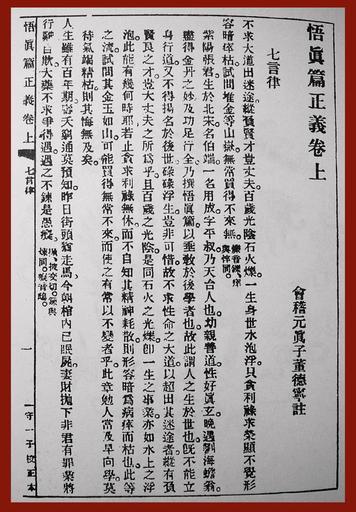 悟眞篇正義卷上
會稽元眞子董德寧註
七言律
不求大道出迷途縱負賢才豈丈夫百歲光陰石火爍一生身世水泡浮只貪利祿求榮顯不覺形
容暗瘁枯試問堆金等山嶽無常買得不來無
紫陽張君生於北宋名伯端一名用成字平叔乃天台人也幼親善道性好眞玄晚遇劉海蟾翁
盡得金丹之妙及功足行全乃撰悟眞篇以垂敎於後學者也故此謂人之生於世也旣不能立
身行道又不得揚名於後世碌碌浮生豈非可惜故不求性命之大道以超出其迷途者縱有負
賢良之才豈大丈夫之所爲乎且百歲之光陰是同石火之光爍卽一生之事業亦如水上之浮
泡此能有幾何時耶若止貪求利祿無休而不自知其精神耗散則形容暗爲病瘁而枯也此等
之流試問其金玉如山可能買得無常不來而使之有常以不變者乎此章勉人當及早向學莫
待氣竭精枯則其悔無及矣
人生雖有百年期壽夭窮通莫預知昨日街頭猶走馬今朝棺內已眠屍妻財拋下非君有罪業將
行難自欺大藥不求爭得遇遇之不鍊是愚癡
悟眞篇正義卷上
七言律
一
守一子校正本